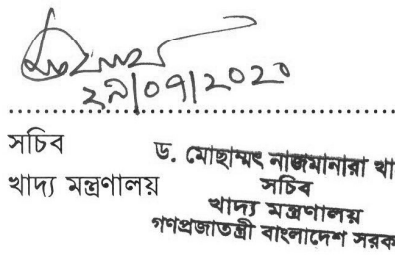 ২৯/০৭/২০২০
সচিব
খাদ্য মন্ত্রণালয়
ড. মোছাম্মৎ নাজমানারা খা
সচিব
খাদ্য মন্ত্রণালয়
গণপ্রজাতন্ত্রী বাংলাদেশ সরক